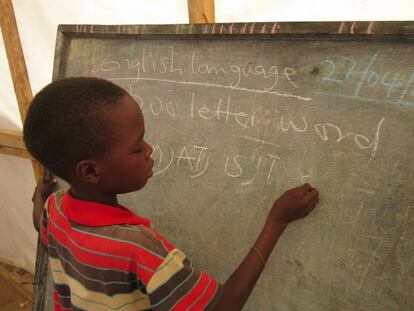 English language 23/04/
letter word
AT, IS, IT